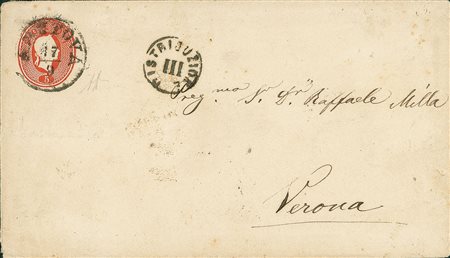 MANTOVA
17
9
DISTRIBUZIONE
III
Preg.mo Sr. Dr. Raffaele Milla
Verona